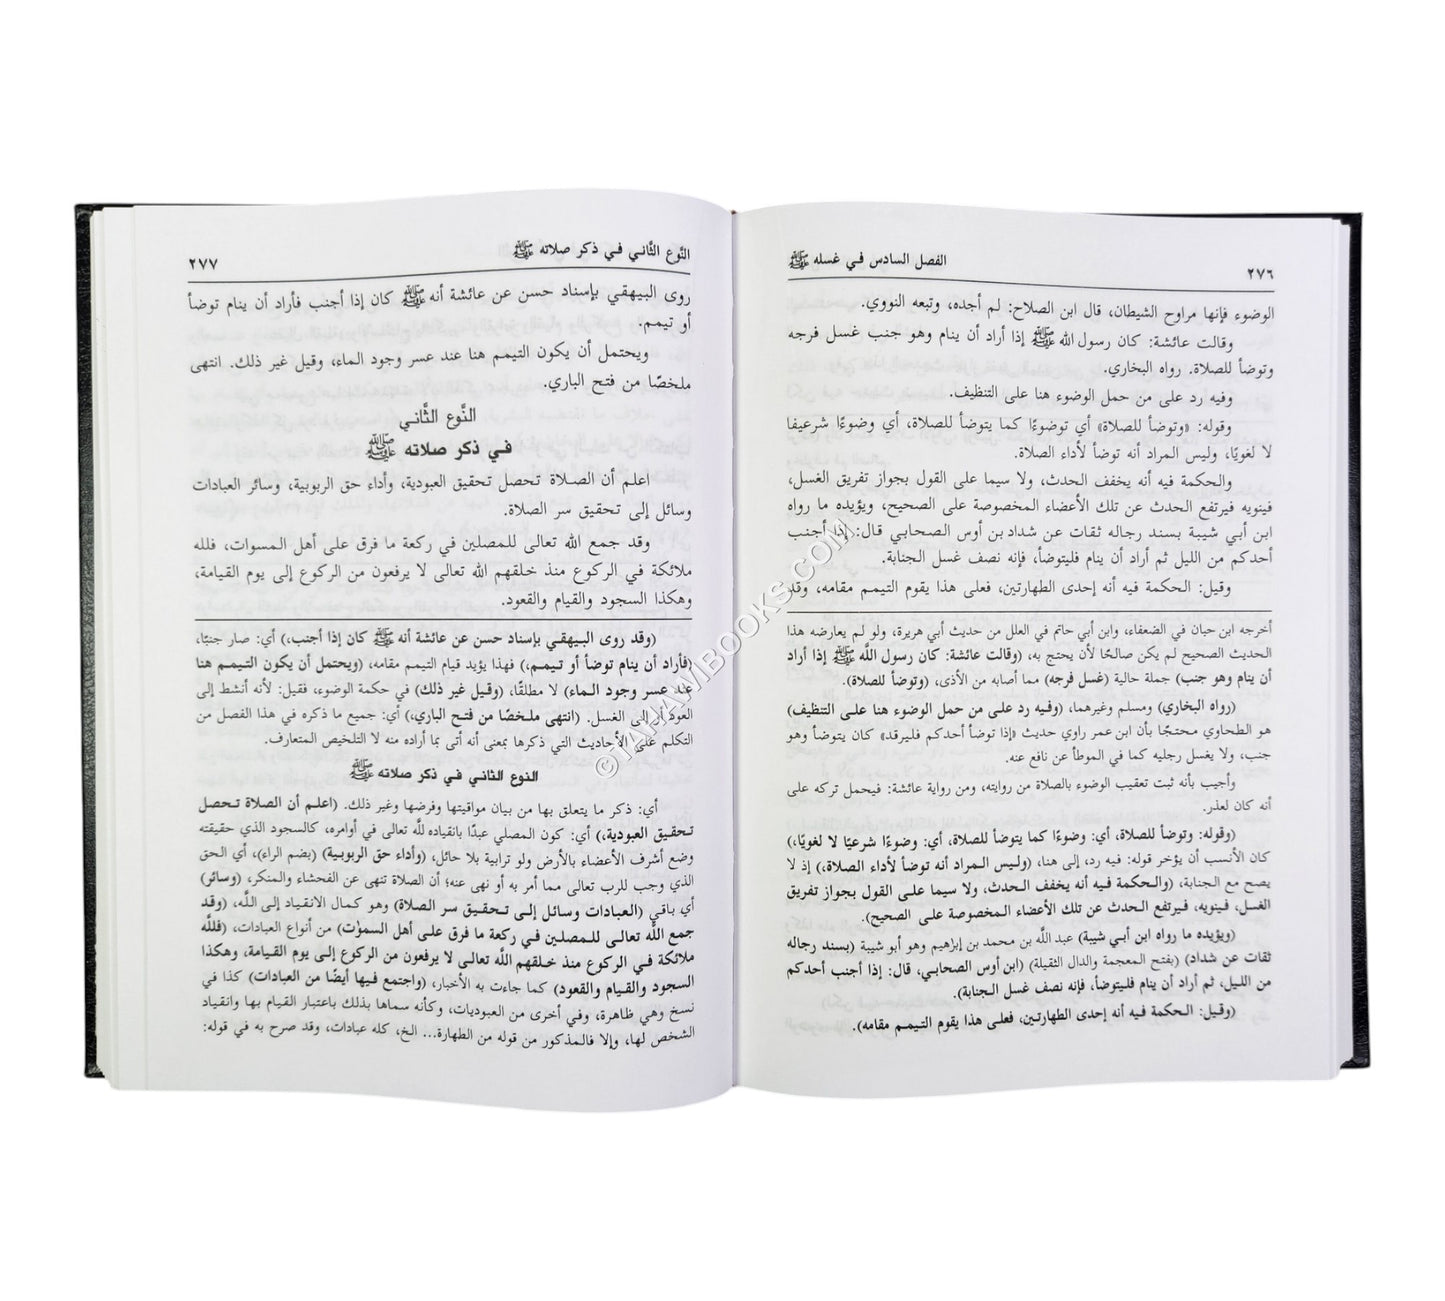 ٢٧٦
الفصل السادس في غسله ﷺ
الوضوء فإنها مراوح الشيطان، قال ابن الصلاح: لم أجده، وتبعه النووي.
وقالت عائشة: كان رسول الله ﷺ إذا أراد أن ينام وهو جنب غسل فرجه
وتوضأ للصلاة. رواه البخاري.
وفيه رد على من حمل الوضوء هنا على التنظيف.
وقوله: «وتوضأ للصلاة» أي توضوءًا كما يتوضأ للصلاة، أي وضوءًا شرعيفا
لا لغويًا، وليس المراد أنه توضأ لأداء الصلاة.
والحكمة فيه أنه يخفف الحدث، ولا سيما على القول بجواز تفريق الغسل،
فينويه فيرتفع الحدث عن تلك الأعضاء المخصوصة على الصحيح، ويؤيده ما رواه
ابن أبي شيبة بسند رجاله ثقات عن شداد بن أوس الصحابي قال: إذا أجنب
أحدكم من الليل ثم أراد أن ينام فليتوضأ، فإنه نصف غسل الجنابة.
وقيل: الحكمة فيه أنه إحدى الطهارتين، فعلى هذا يقوم التيمم مقامه، وقد
أخرجه ابن حبان في الضعفاء، وابن أبي حاتم في العلل من حديث أبي هريرة، ولو لم يعارضه هذا
الحديث الصحيح لم يكن صالحًا لأن يحتج به، (وقالت عائشة: كان رسول اللَّه ﷺ إذا أراد
أن ينام وهو جنب) جملة حالية (غسل فرجه) مما أصابه من الأذى، (وتوضأ للصلاة).
(رواه البخاري) ومسلم وغيرهما، (وفيه رد على من حمل الوضوء هنا على التنظيف)
هو الطحاوي محتجًا بأن ابن عمر راوي حديث «إذا توضأ أحدكم فليرقد» كان يتوضأ وهو
جنب، ولا يغسل رجليه كما في الموطأ عن نافع عنه.
وأجيب بأنه ثبت تعقيب الوضوء بالصلاة من روايته، ومن رواية عائشة: فيحمل تركه على
أنه كان لعذر.
(وقوله: وتوضأ للصلاة، أي: وضوءًا كما يتوضأ للصلاة، أي: وضوءًا شرعيًا لا لغويًا،)
كان الأنسب أن يؤخر قوله: فيه رد، إلى هنا، (وليس المراد أنه توضأ لأداء الصلاة،) إذ لا
يصح مع الجنابة، (والحكمة فيه أنه يخفف الحدث، ولا سيما على القول بجواز تفريق
الغسل، فينويه، فيرتفع الحدث عن تلك الأعضاء المخصوصة على الصحيح).
(ويؤيده ما رواه ابن أبي شيبة) عبد اللَّه بن محمد بن إبرٰهيم وهو أبو شيبة (بسند رجاله
ثقات عن شداد) (بفتح المعجمة والدال الثقيلة) (ابن أوس الصحابي، قال: إذا أجنب أحدكم
من الليل، ثم أراد أن ينام فليتوضأ، فإنه نصف غسل الجنابة).
(وقيل: الحكمة فيه أنه إحدى الطهارتين، فعلى هذا يقوم التيمم مقامه).
النَّوع الثَّاني في ذكر صلاته ﷺ
٢٧٧
روى البيهقي بإسناد حسن عن عائشة أنه ﷺ كان إذا أجنب فأراد أن ينام توضأ
أو تيمم.
ويحتمل أن يكون التيمم هنا عند عسر وجود الماء، وقيل غير ذلك. انتهى
ملخصًا من فتح الباري.
النَّوع الثَّاني
في ذكر صلاته ﷺ
اعلم أن الصلاة تحصل تحقيق العبودية، وأداء حق الربوبية، وسائر العبادات
وسائل إلى تحقيق سر الصلاة.
وقد جمع الله تعالى للمصلين في ركعة ما فرق على أهل المسوات، فلله
ملائكة في الركوع منذ خلقهم الله تعالى لا يرفعون من الركوع إلى يوم القيامة،
وهكذا السجود والقيام والقعود.
(وقد روى البيهقي بإسناد حسن عن عائشة أنه ﷺ كان إذا أجنب،) أي: صار جنبًا،
(فأراد أن ينام توضأ أو تيمم،) فهذا يؤيد قيام التيمم مقامه، (ويحتمل أن يكون التيمم هنا
عند عسر وجود الماء) لا مطلقًا، (وقيل غير ذلك) في حكمة الوضوء، فقيل: لأنه أنشط إلى
العود أو إلى الغسل. (انتهى ملخصًا من فتح الباري،) أي: جميع ما ذكره في هذا الفصل من
التكلم على الأحاديث التي ذكرها بمعنى أنه أتى بما أراده منه لا التلخيص المتعارف.
النوع الثاني في ذكر صلاته ﷺ
أي: ذكر ما يتعلق بها من بيان مواقيتها وفرضها وغير ذلك. (اعلم أن الصلاة تحصل
تحقيق العبودية،) أي: كون المصلي عبدًا بانقياده للَّه تعالى في أوامره، كالسجود الذي حقيقته
وضع أشرف الأعضاء بالأرض ولو ترابية بلا حائل، (وأداء حق الربوبية) (بضم الراء)، أي الحق
الذي وجب للرب تعالى مما أمر به أو نهى عنه؛ أن الصلاة تنهى عن الفحشاء والمنكر، (وسائر)
أي باقي (العبادات وسائل إلى تحقيق سر الصلاة) وهو كمال الانقياد إلى اللَّه، (وقد
جمع اللَّه تعالى للمصلين في ركعة ما فرق على أهل السمٰوٰت) من أنواع العبادات، (فللَّه
ملائكة في الركوع منذ خلقهم اللَّه تعالى لا يرفعون من الركوع إلى يوم القيامة، وهكذا
السجود والقيام والقعود) كما جاءت به الأخبار، (واجتمع فيها أيضًا من العبادات) كذا في
نسخ وهي ظاهرة، وفي أخرى من العبوديات، وكأنه سماها بذلك باعتبار القيام بها وانقياد
الشخص لها، وإلا فالمذكور من قوله من الطهارة... الخ، كله عبادات، وقد صرح به في قوله:
©TAHAWIBOOKS.COM